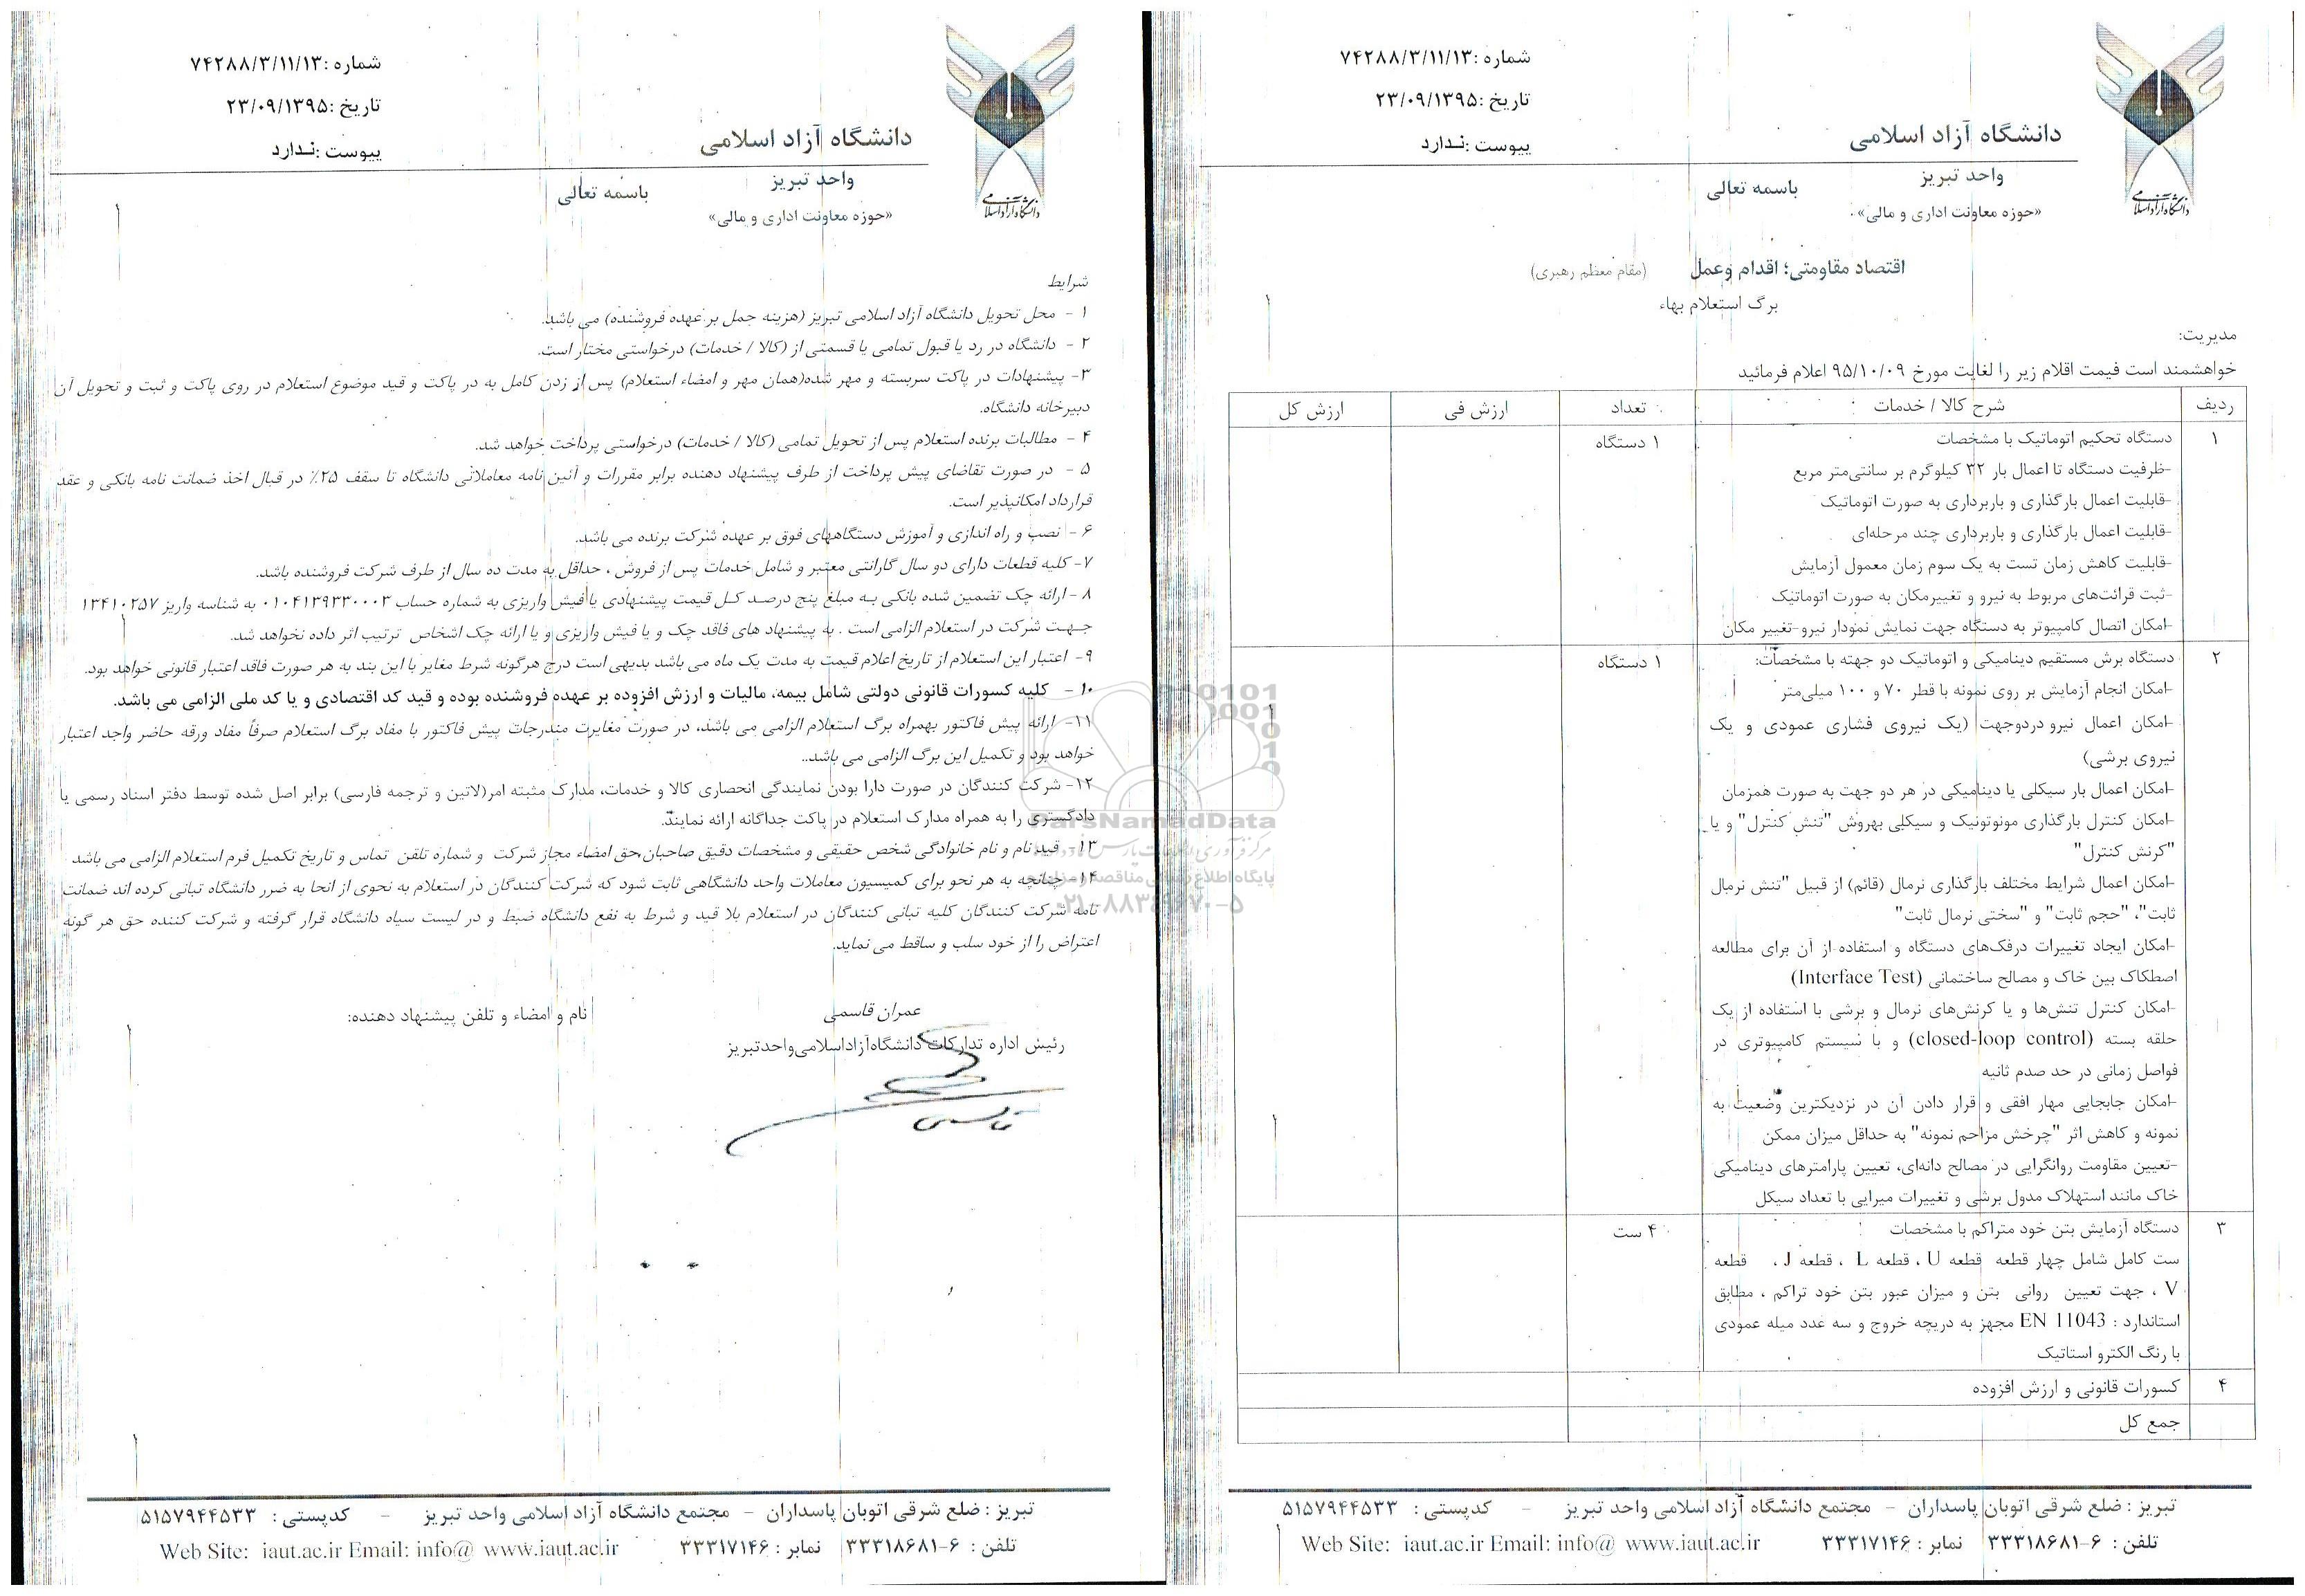 شماره :۷۴۲۸۸/۳/۱۱/۱۳
تاریخ :۲۳/۰۹/۱۳۹۵
پیوست :ندارد
دانشگاه آزاد اسلامی
واحد تبریز
باسمه تعالی
«حوزه معاونت اداری و مالی»
دانشگاه آزاد اسلامی
اقتصاد مقاومتی؛ اقدام وعمل (مقام معظم رهبری)
برگ استعلام بهاء
مدیریت:
خواهشمند است قیمت اقلام زیر را لغایت مورخ ۹۵/۱۰/۰۹ اعلام فرمائید
ردیف شرح کالا / خدمات تعداد ارزش فی ارزش کل
۱ دستگاه تحکیم اتوماتیک با مشخصات ۱ دستگاه
-ظرفیت دستگاه تا اعمال بار ۳۲ کیلوگرم بر سانتی‌متر مربع
-قابلیت اعمال بارگذاری و باربرداری به صورت اتوماتیک
-قابلیت اعمال بارگذاری و باربرداری چند مرحله‌ای
-قابلیت کاهش زمان تست به یک سوم زمان معمول آزمایش
-ثبت قرائت‌های مربوط به نیرو و تغییرمکان به صورت اتوماتیک
-امکان اتصال کامپیوتر به دستگاه جهت نمایش نمودار نیرو-تغییر مکان
۲ دستگاه برش مستقیم دینامیکی و اتوماتیک دو جهته با مشخصات: ۱ دستگاه
-امکان انجام آزمایش بر روی نمونه با قطر ۷۰ و ۱۰۰ میلی‌متر
-امکان اعمال نیرو دردوجهت (یک نیروی فشاری عمودی و یک
نیروی برشی)
-امکان اعمال بار سیکلی یا دینامیکی در هر دو جهت به صورت همزمان
-امکان کنترل بارگذاری مونوتونیک و سیکلی بهروش "تنش کنترل" و یا
"کرنش کنترل"
-امکان اعمال شرایط مختلف بارگذاری نرمال (قائم) از قبیل "تنش نرمال
ثابت"، "حجم ثابت" و "سختی نرمال ثابت"
-امکان ایجاد تغییرات درفک‌های دستگاه و استفاده از آن برای مطالعه
اصطکاک بین خاک و مصالح ساختمانی (Interface Test)
-امکان کنترل تنش‌ها و یا کرنش‌های نرمال و برشی با استفاده از یک
حلقه بسته (closed-loop control) و با سیستم کامپیوتری در
فواصل زمانی در حد صدم ثانیه
-امکان جابجایی مهار افقی و قرار دادن آن در نزدیکترین وضعیت به
نمونه و کاهش اثر "چرخش مزاحم نمونه" به حداقل میزان ممکن
-تعیین مقاومت روانگرایی در مصالح دانه‌ای، تعیین پارامترهای دینامیکی
خاک مانند استهلاک مدول برشی و تغییرات میرایی با تعداد سیکل
۳ دستگاه آزمایش بتن خود متراکم با مشخصات ۴ ست
ست کامل شامل چهار قطعه قطعه U ، قطعه L ، قطعه J ، قطعه
V ، جهت تعیین روانی بتن و میزان عبور بتن خود تراکم ، مطابق
استاندارد : EN 11043 مجهز به دریچه خروج و سه عدد میله عمودی
با رنگ الکترو استاتیک
۴ کسورات قانونی و ارزش افزوده
جمع کل
تبریز : ضلع شرقی اتوبان پاسداران – مجتمع دانشگاه آزاد اسلامی واحد تبریز – کدپستی : ۵۱۵۷۹۴۴۵۳۳
تلفن : ۶-۳۳۳۱۸۶۸۱ نمابر : ۳۳۳۱۷۱۴۶ Web Site: iaut.ac.ir Email: info@ www.iaut.ac.ir
شماره :۷۴۲۸۸/۳/۱۱/۱۳
تاریخ :۲۳/۰۹/۱۳۹۵
پیوست :ندارد
دانشگاه آزاد اسلامی
واحد تبریز
باسمه تعالی
«حوزه معاونت اداری و مالی»
دانشگاه آزاد اسلامی
شرایط
۱ - محل تحویل دانشگاه آزاد اسلامی تبریز (هزینه حمل بر عهده فروشنده) می باشد.
۲ - دانشگاه در رد یا قبول تمامی یا قسمتی از (کالا / خدمات) درخواستی مختار است.
۳- پیشنهادات در پاکت سربسته و مهر شده(همان مهر و امضاء استعلام) پس از زدن کامل به در پاکت و قید موضوع استعلام در روی پاکت و ثبت و تحویل آن
دبیرخانه دانشگاه.
۴ - مطالبات برنده استعلام پس از تحویل تمامی (کالا / خدمات) درخواستی پرداخت خواهد شد.
۵ - در صورت تقاضای پیش پرداخت از طرف پیشنهاد دهنده برابر مقررات و آئین نامه معاملاتی دانشگاه تا سقف ۲۵٪ در قبال اخذ ضمانت نامه بانکی و عقد
قرارداد امکانپذیر است.
۶ - نصب و راه اندازی و آموزش دستگاههای فوق بر عهده شرکت برنده می باشد.
۷- کلیه قطعات دارای دو سال گارانتی معتبر و شامل خدمات پس از فروش ، حداقل به مدت ده سال از طرف شرکت فروشنده باشد.
۸ - ارائه چک تضمین شده بانکی به مبلغ پنج درصد کل قیمت پیشنهادی یا فیش واریزی به شماره حساب ۰۱۰۴۱۳۹۳۳۰۰۰۳ به شناسه واریز ۱۳۴۱۰۲۵۷
جهت شرکت در استعلام الزامی است . به پیشنهاد های فاقد چک و یا فیش واریزی و یا ارائه چک اشخاص ترتیب اثر داده نخواهد شد.
۹- اعتبار این استعلام از تاریخ اعلام قیمت به مدت یک ماه می باشد بدیهی است درج هرگونه شرط مغایر با این بند به هر صورت فاقد اعتبار قانونی خواهد بود.
۱۰ - کلیه کسورات قانونی دولتی شامل بیمه، مالیات و ارزش افزوده بر عهده فروشنده بوده و قید کد اقتصادی و یا کد ملی الزامی می باشد.
۱۱- ارائه پیش فاکتور بهمراه برگ استعلام الزامی می باشد، در صورت مغایرت مندرجات پیش فاکتور با مفاد برگ استعلام صرفاً مفاد ورقه حاضر واجد اعتبار
خواهد بود و تکمیل این برگ الزامی می باشد..
۱۲- شرکت کنندگان در صورت دارا بودن نمایندگی انحصاری کالا و خدمات، مدارک مثبته امر(لاتین و ترجمه فارسی) برابر اصل شده توسط دفتر اسناد رسمی یا
دادگستری را به همراه مدارک استعلام در پاکت جداگانه ارائه نمایند.
۱۳- قید نام و نام خانوادگی شخص حقیقی و مشخصات دقیق صاحبان حق امضاء مجاز شرکت و شماره تلفن تماس و تاریخ تکمیل فرم استعلام الزامی می باشد
۱۴- چنانچه به هر نحو برای کمیسیون معاملات واحد دانشگاهی ثابت شود که شرکت کنندگان در استعلام به نحوی از انحا به ضرر دانشگاه تبانی کرده اند ضمانت
نامه شرکت کنندگان کلیه تبانی کنندگان در استعلام بلا قید و شرط به نفع دانشگاه ضبط و در لیست سیاه دانشگاه قرار گرفته و شرکت کننده حق هر گونه
اعتراض را از خود سلب و ساقط می نماید.
عمران قاسمی
رئیس اداره تدارکات دانشگاه‌آزاداسلامی‌واحدتبریز
نام و امضاء و تلفن پیشنهاد دهنده:
قاسمی
تبریز : ضلع شرقی اتوبان پاسداران – مجتمع دانشگاه آزاد اسلامی واحد تبریز – کدپستی : ۵۱۵۷۹۴۴۵۳۳
تلفن : ۶-۳۳۳۱۸۶۸۱ نمابر : ۳۳۳۱۷۱۴۶ Web Site: iaut.ac.ir Email: info@ www.iaut.ac.ir
ParsNamadData